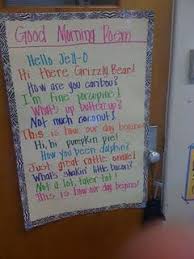 Good Morning Poem
Hello Jell-O
Hi there Grizzly Bear!
How are you caribou?
I'm fine porcupine!
What's up buttercup?
Not much coconut!
This is how our day begins
Hi, hi pumpkin pie!
How you been dolphin?
Just great rattle snake!
What's shakin' little bacon?
Not a lot, tater tot!
This is how our day begins!